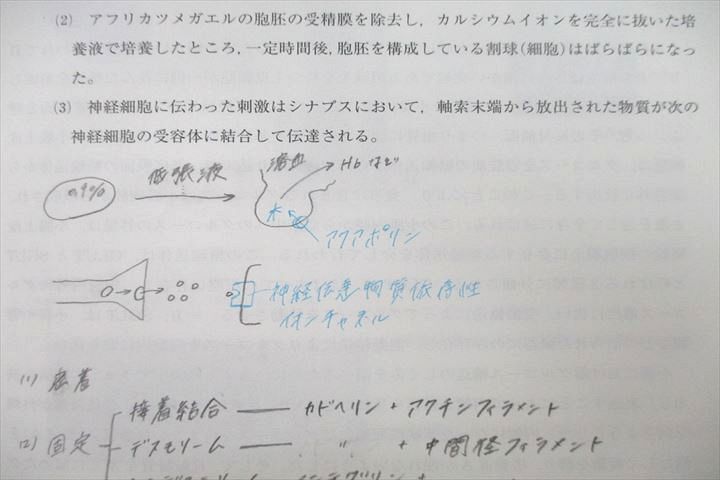 (2) アフリカツメガエルの胞胚の受精膜を除去し，カルシウムイオンを完全に抜いた培
養液で培養したところ，一定時間後，胞胚を構成している割球(細胞)はばらばらになっ
た。
(3) 神経細胞に伝わった刺激はシナプスにおいて，軸索末端から放出された物質が次の
神経細胞の受容体に結合して伝達される。
0.9%
低張液
溶血
Hbなど
水
アクアポリン
神経伝達物質依存性
イオンチャネル
(1) 密着
接着結合 — カドヘリン + アクチンフィラメント
(2) 固定
デスモソーム — 〃 + 中間径フィラメント